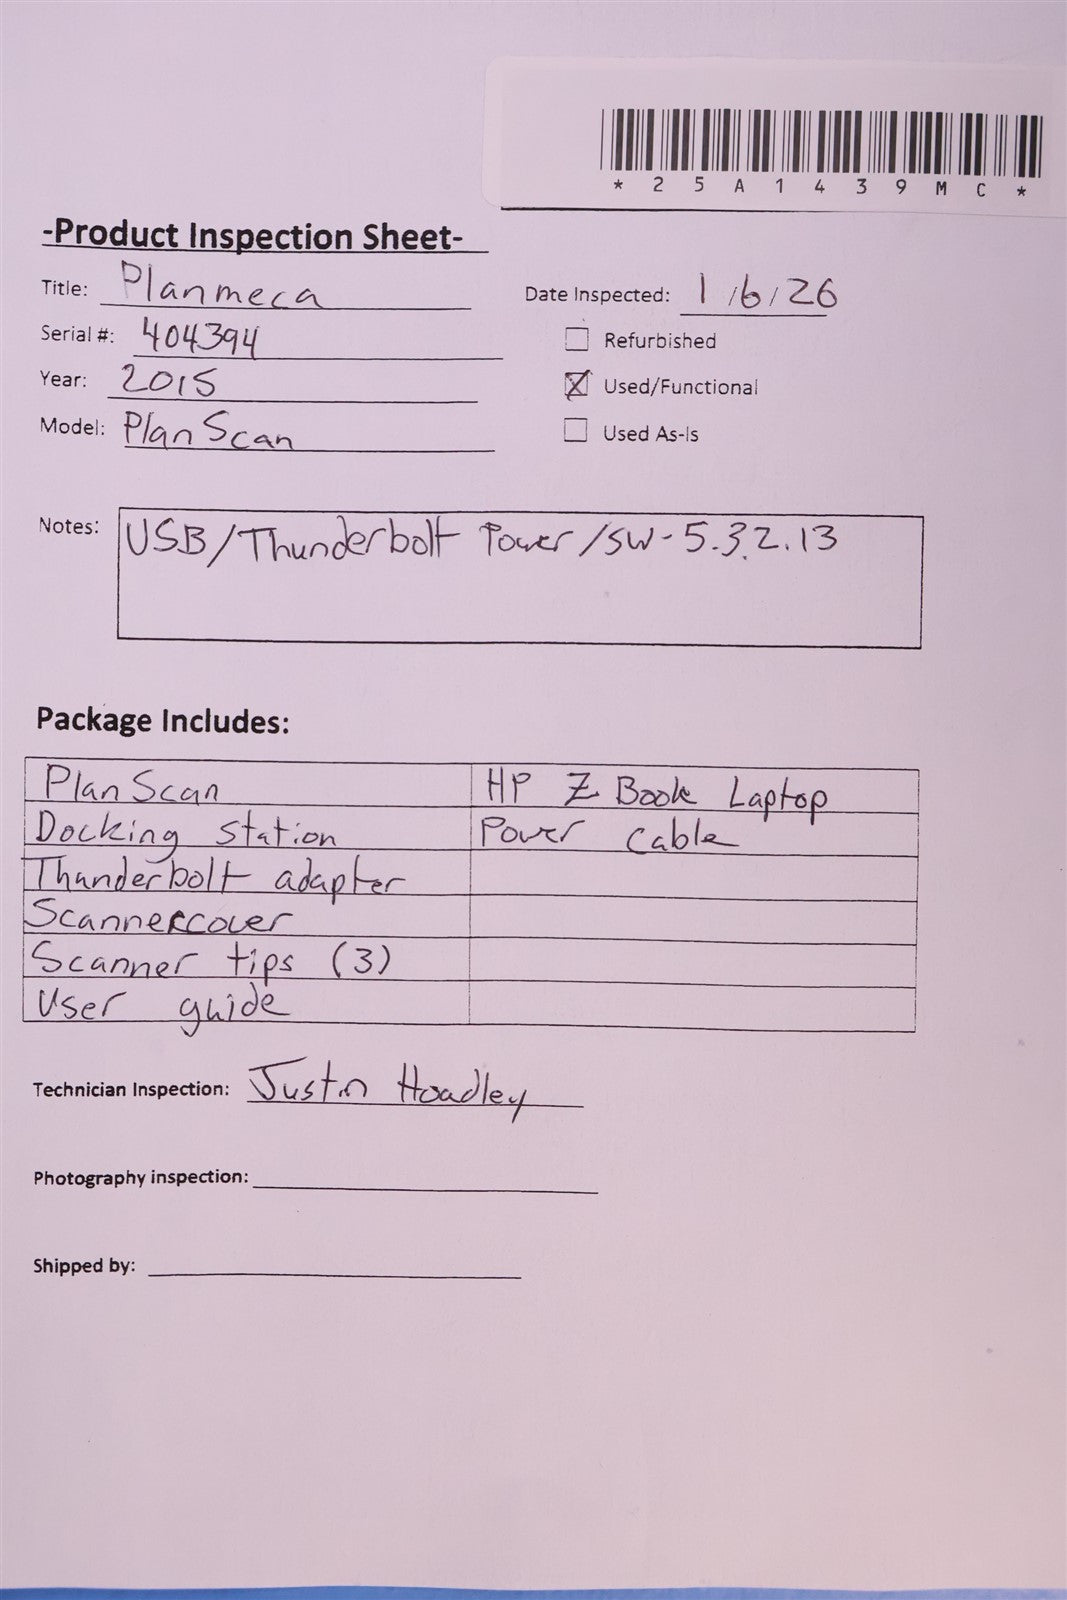 * 2 5 A 1 4 3 9 M C *
-Product Inspection Sheet-
Title: Planmeca
Date Inspected: 1/6/26
Serial #: 404394
Refurbished
Year: 2015
Used/Functional
Model: PlanScan
Used As-Is
Notes: USB/Thunderbolt Power/SW-5.3.2.13
Package Includes:
PlanScan HP Z Book Laptop
Docking station Power cable
Thunderbolt adapter
Scannercover
Scanner tips (3)
User guide
Technician Inspection: Justin Hoadley
Photography inspection:
Shipped by: